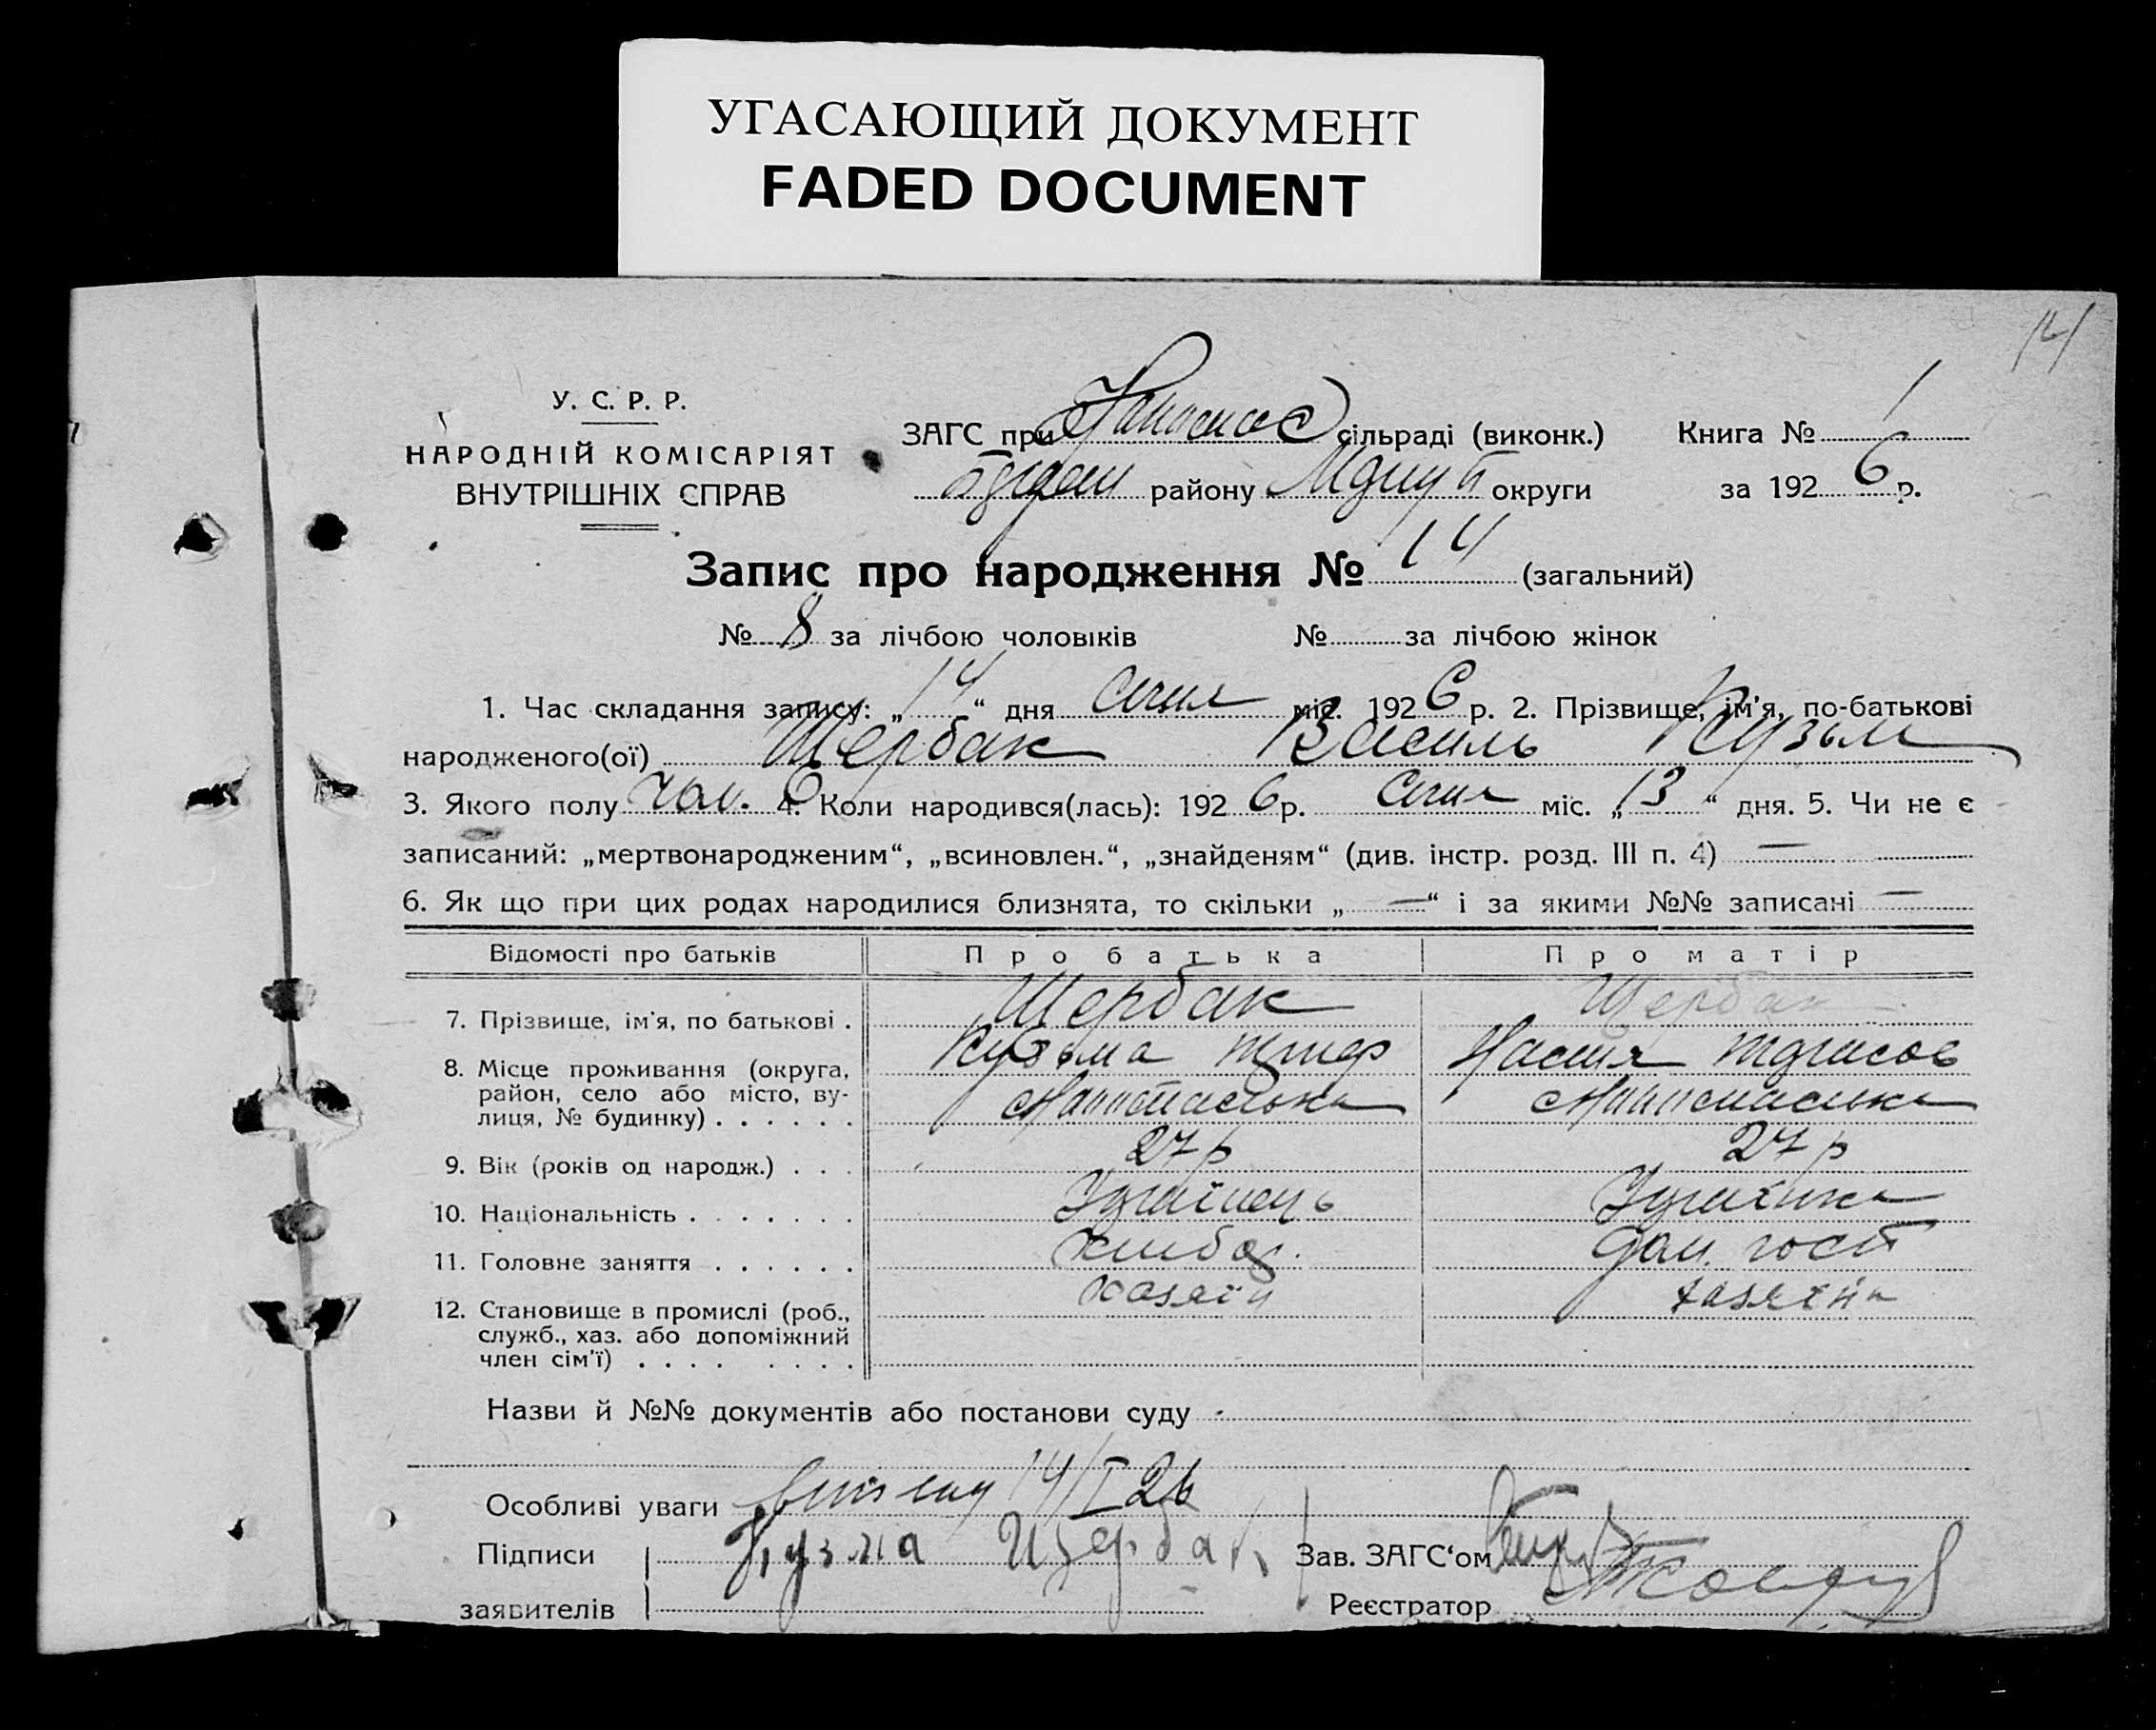 УГАСАЮЩИЙ ДОКУМЕНТ
FADED DOCUMENT
14
У. С. Р. Р.
НАРОДНІЙ КОМІСАРІЯТ
ВНУТРІШНІХ СПРАВ
ЗАГС при сільраді (виконк.)
Книга № 1
району округи
за 1926 р.
Запис про народження № 14 (загальний)
№ 8 за лічбою чоловіків № за лічбою жінок
1. Час складання запису: „14“ дня Січня міс. 1926 р. 2. Прізвище, ім'я, по-батькові
народженого(ої) Щербак Василь Кузьм
3. Якого полу чол. 4. Коли народився(лась): 1926 р. Січня міс. „13“ дня. 5. Чи не є
записаний: „мертвонародженим“, „всиновлен.“, „знайденям“ (див. інстр. розд. III п. 4) —
6. Як що при цих родах народилися близнята, то скільки „—“ і за якими №№ записані —
Відомості про батьків Про батька Про матір
7. Прізвище, ім'я, по батькові . Щербак Щербак
Кузьма Настя
8. Місце проживання (округа,
район, село або місто, ву-
лиця, № будинку) . . . . . .
9. Вік (років од народж.) . . . 27 р 27 р
10. Національність . . . . . . . Українець Українка
11. Головне заняття . . . . . . Хлібор. Дом. госп
12. Становище в промислі (роб.,
служб., хаз. або допоміжний
член сім'ї) . . . . . . . . хазяїн хазяїна
Назви й №№ документів або постанови суду
Особливі уваги 14/I 26
Підписи Кузма Щербак
Зав. ЗАГС‘ом
заявителів
Реєстратор